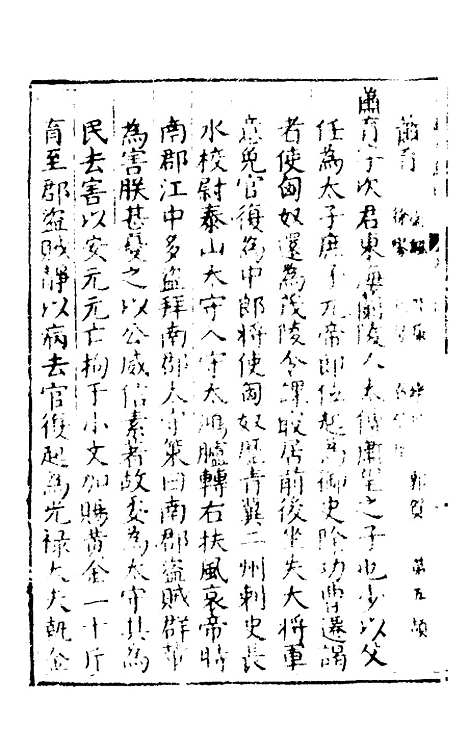 蕭育 郭賀 第五頡
蕭育字次君東海蘭陵人太傅蕭望之子也少以父
任為太子庶子元帝即位起為御史除功曹遷謁
者使匈奴還為茂陵令課殿居前後坐失大將軍
意免官復為中郎將使匈奴歷青冀二州刺史長
水校尉泰山太守入守大鴻臚轉右扶風哀帝時
南郡江中多盜拜南郡太守策曰南郡盜賊群輩
為害朕甚憂之以公威信素著故委為太守其為
民去害以安元元亡拘于小文加賜黃金一十斤
育至郡盜賊靜以病去官復起為光祿大夫執金